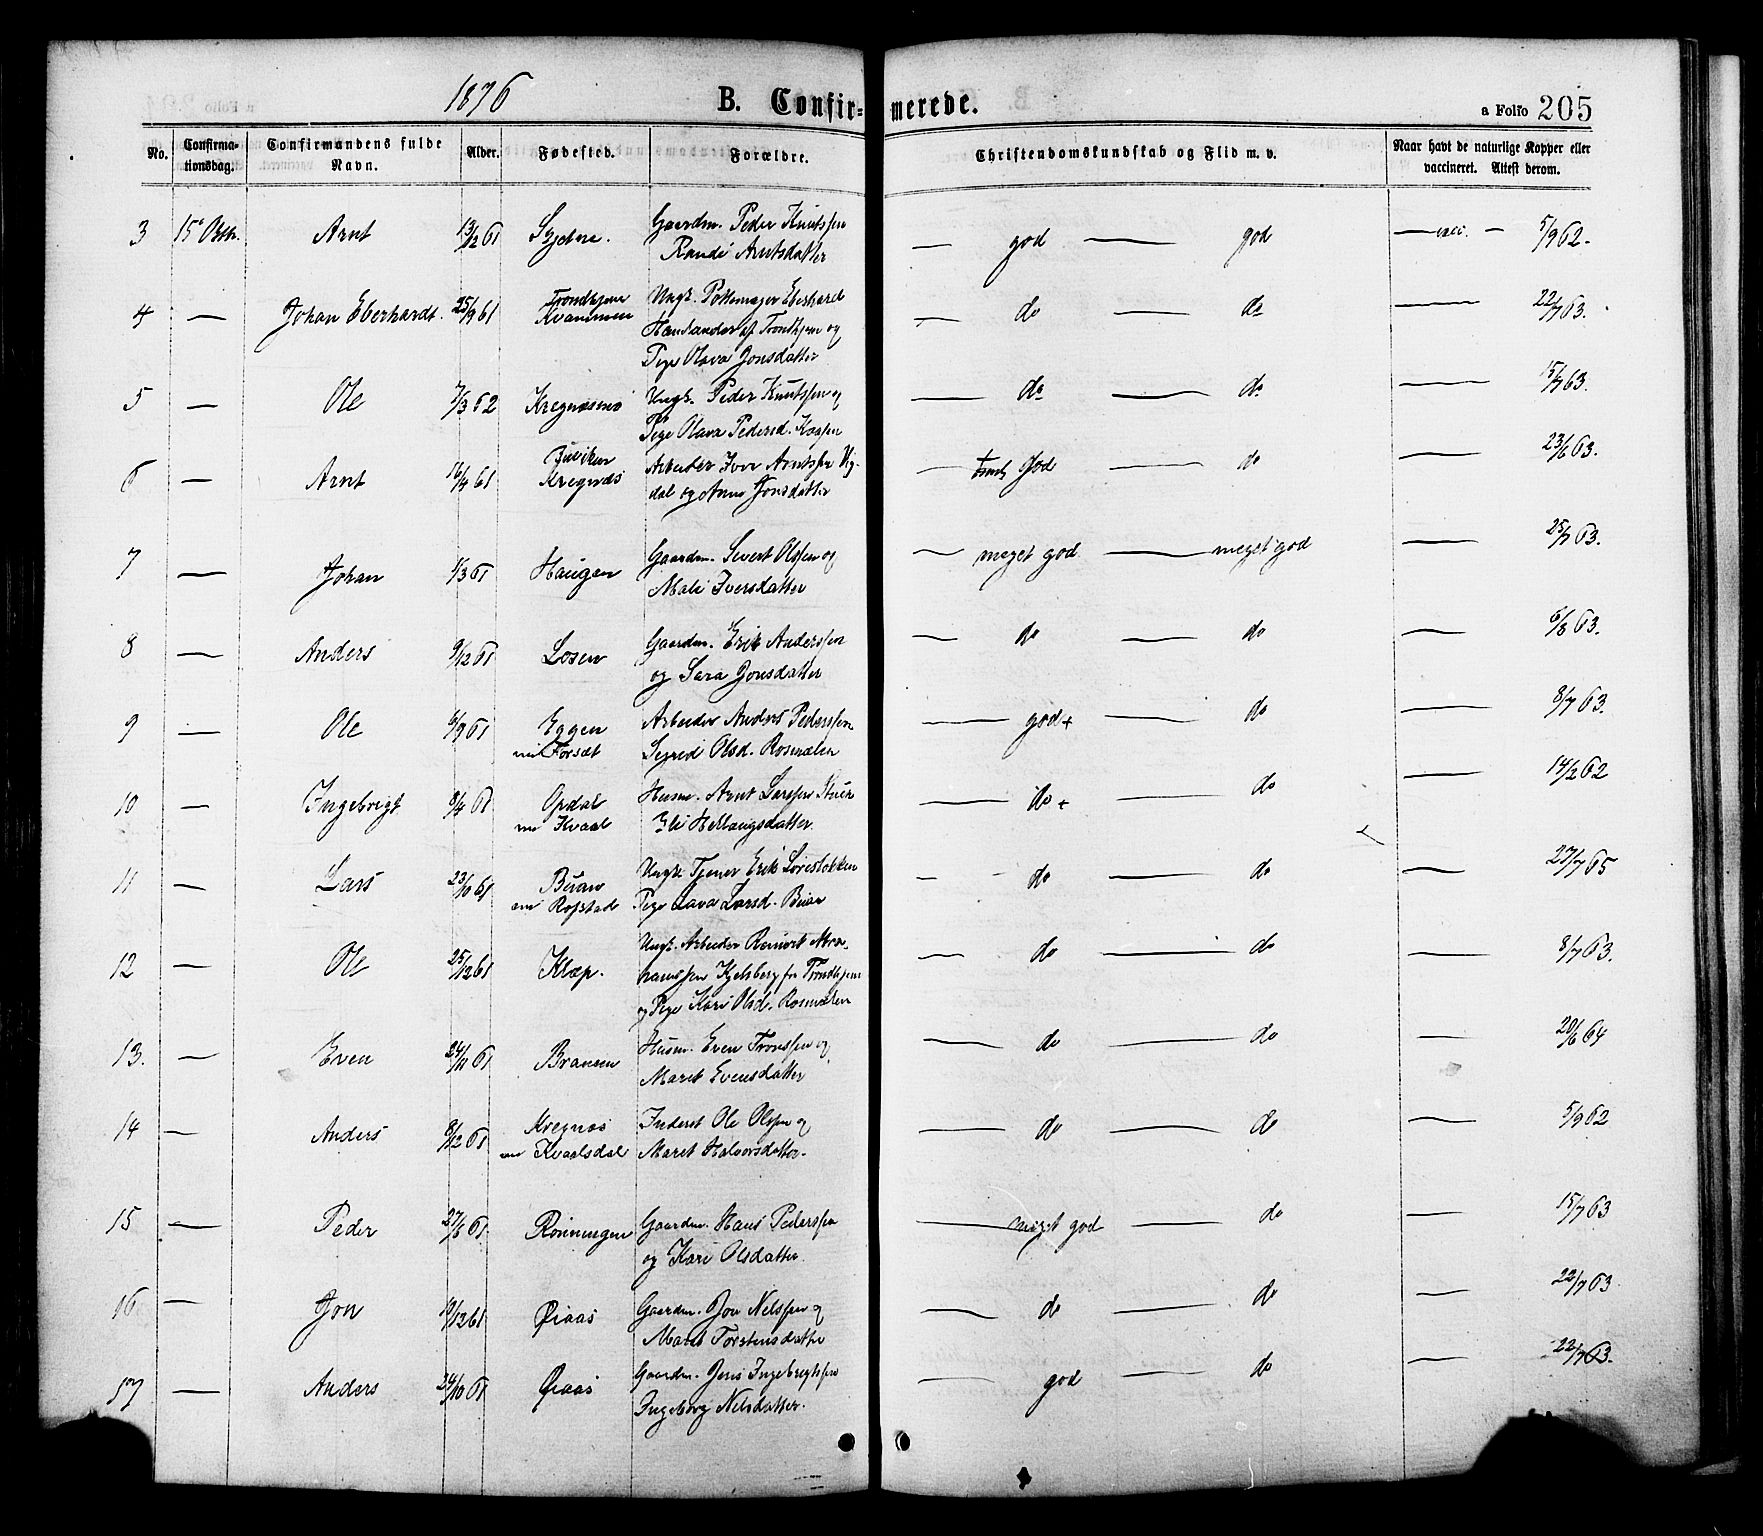 1876 B. Confirmerede. a Folio 205
No. Confirmationsdag. Confirmandens fulde Navn. Alder. Fødested. Forældre. Christendomskundskab og Flid m. v. Naar havt de naturlige Kopper eller vaccineret. Attest derom.
3 15 Octb. Arnt 13/2 61 Gaardm. Peder Knutssen — god — god — vacc. — 5/9 62.
Randi Arntsdatter
4 — Johan Eberhardt. 25/9 61 Trondhjem Ungk. Eberhard — do — do — 22/7 63.
Kvammen af Trondhjem og
Pige Olava Jonsdatter
5 — Ole 7/3 62 Kregnæsmo Ungk. Peder Knutssen og — do — do — 15/7 63.
Pige Olava Pedersd.
6 — Arnt 16/4 61 Buviken Arbeider Iver Arntssen Vig- — god — do — 23/6 63.
Kregnæs dal og Anne Jonsdatter
7 — Johan 1/3 61 Haugen Gaardm. Sivert Olssen og — meget god — meget god — 25/7 63.
Mali Iversdatter
8 — Anders 9/12 61 Losen Gaardm. Erik Anderssen — do — do — 6/8 63.
og Sara Jonsdatter
9 — Ole 6/9 61 Eggen Arbeider Anders Pederssen — god+ — do — 8/7 63.
nu Forsæt Sigrid Olsd. Rosmælen
10 — Ingebrigt 8/4 61 Opdal Husm. Arnt Larssen — do+ — do — 14/2 62
nu Kvaal Eli Hellaugsdatter
11 — Lars 23/10 61 Buan Ungk. Tjener Erik — do — do — 27/7 65
nu Rofstad Pige Lava Larsd. Buan
12 — Ole 25/12 61 Klæp. Ungk. Arbeider Abra- — do — do — 8/7 63.
hamssen Kjelsberg fra Trondhjem
og Pige Kari Olsd. Rosmælen
13. — Even 24/11 61 Braaen Husm. Even Tronssen og — do — do — 20/6 64
Maret Evensdatter
14 — Anders 8/12 61 Kregnæs Inderst Ole Olssen og — do — do — 5/9 62
nu Kvaalsdal Maret Halvorsdatter.
15 — Peder 27/8 61 Rønningen Gaardm. Hans Pederssen — meget god — do — 15/7 63
og Kari Olsdatter.
16 — Jon 10/12 61 Øiaas Gaardm. Jon Nilssen og — do — do — 22/7 63
Marit Torstensdatter
17 — Anders 24/10 61 Øiaas Gaardm. Jens Ingebrigtssen — god — do — 22/7 63.
Ingeborg Nilsdatter.